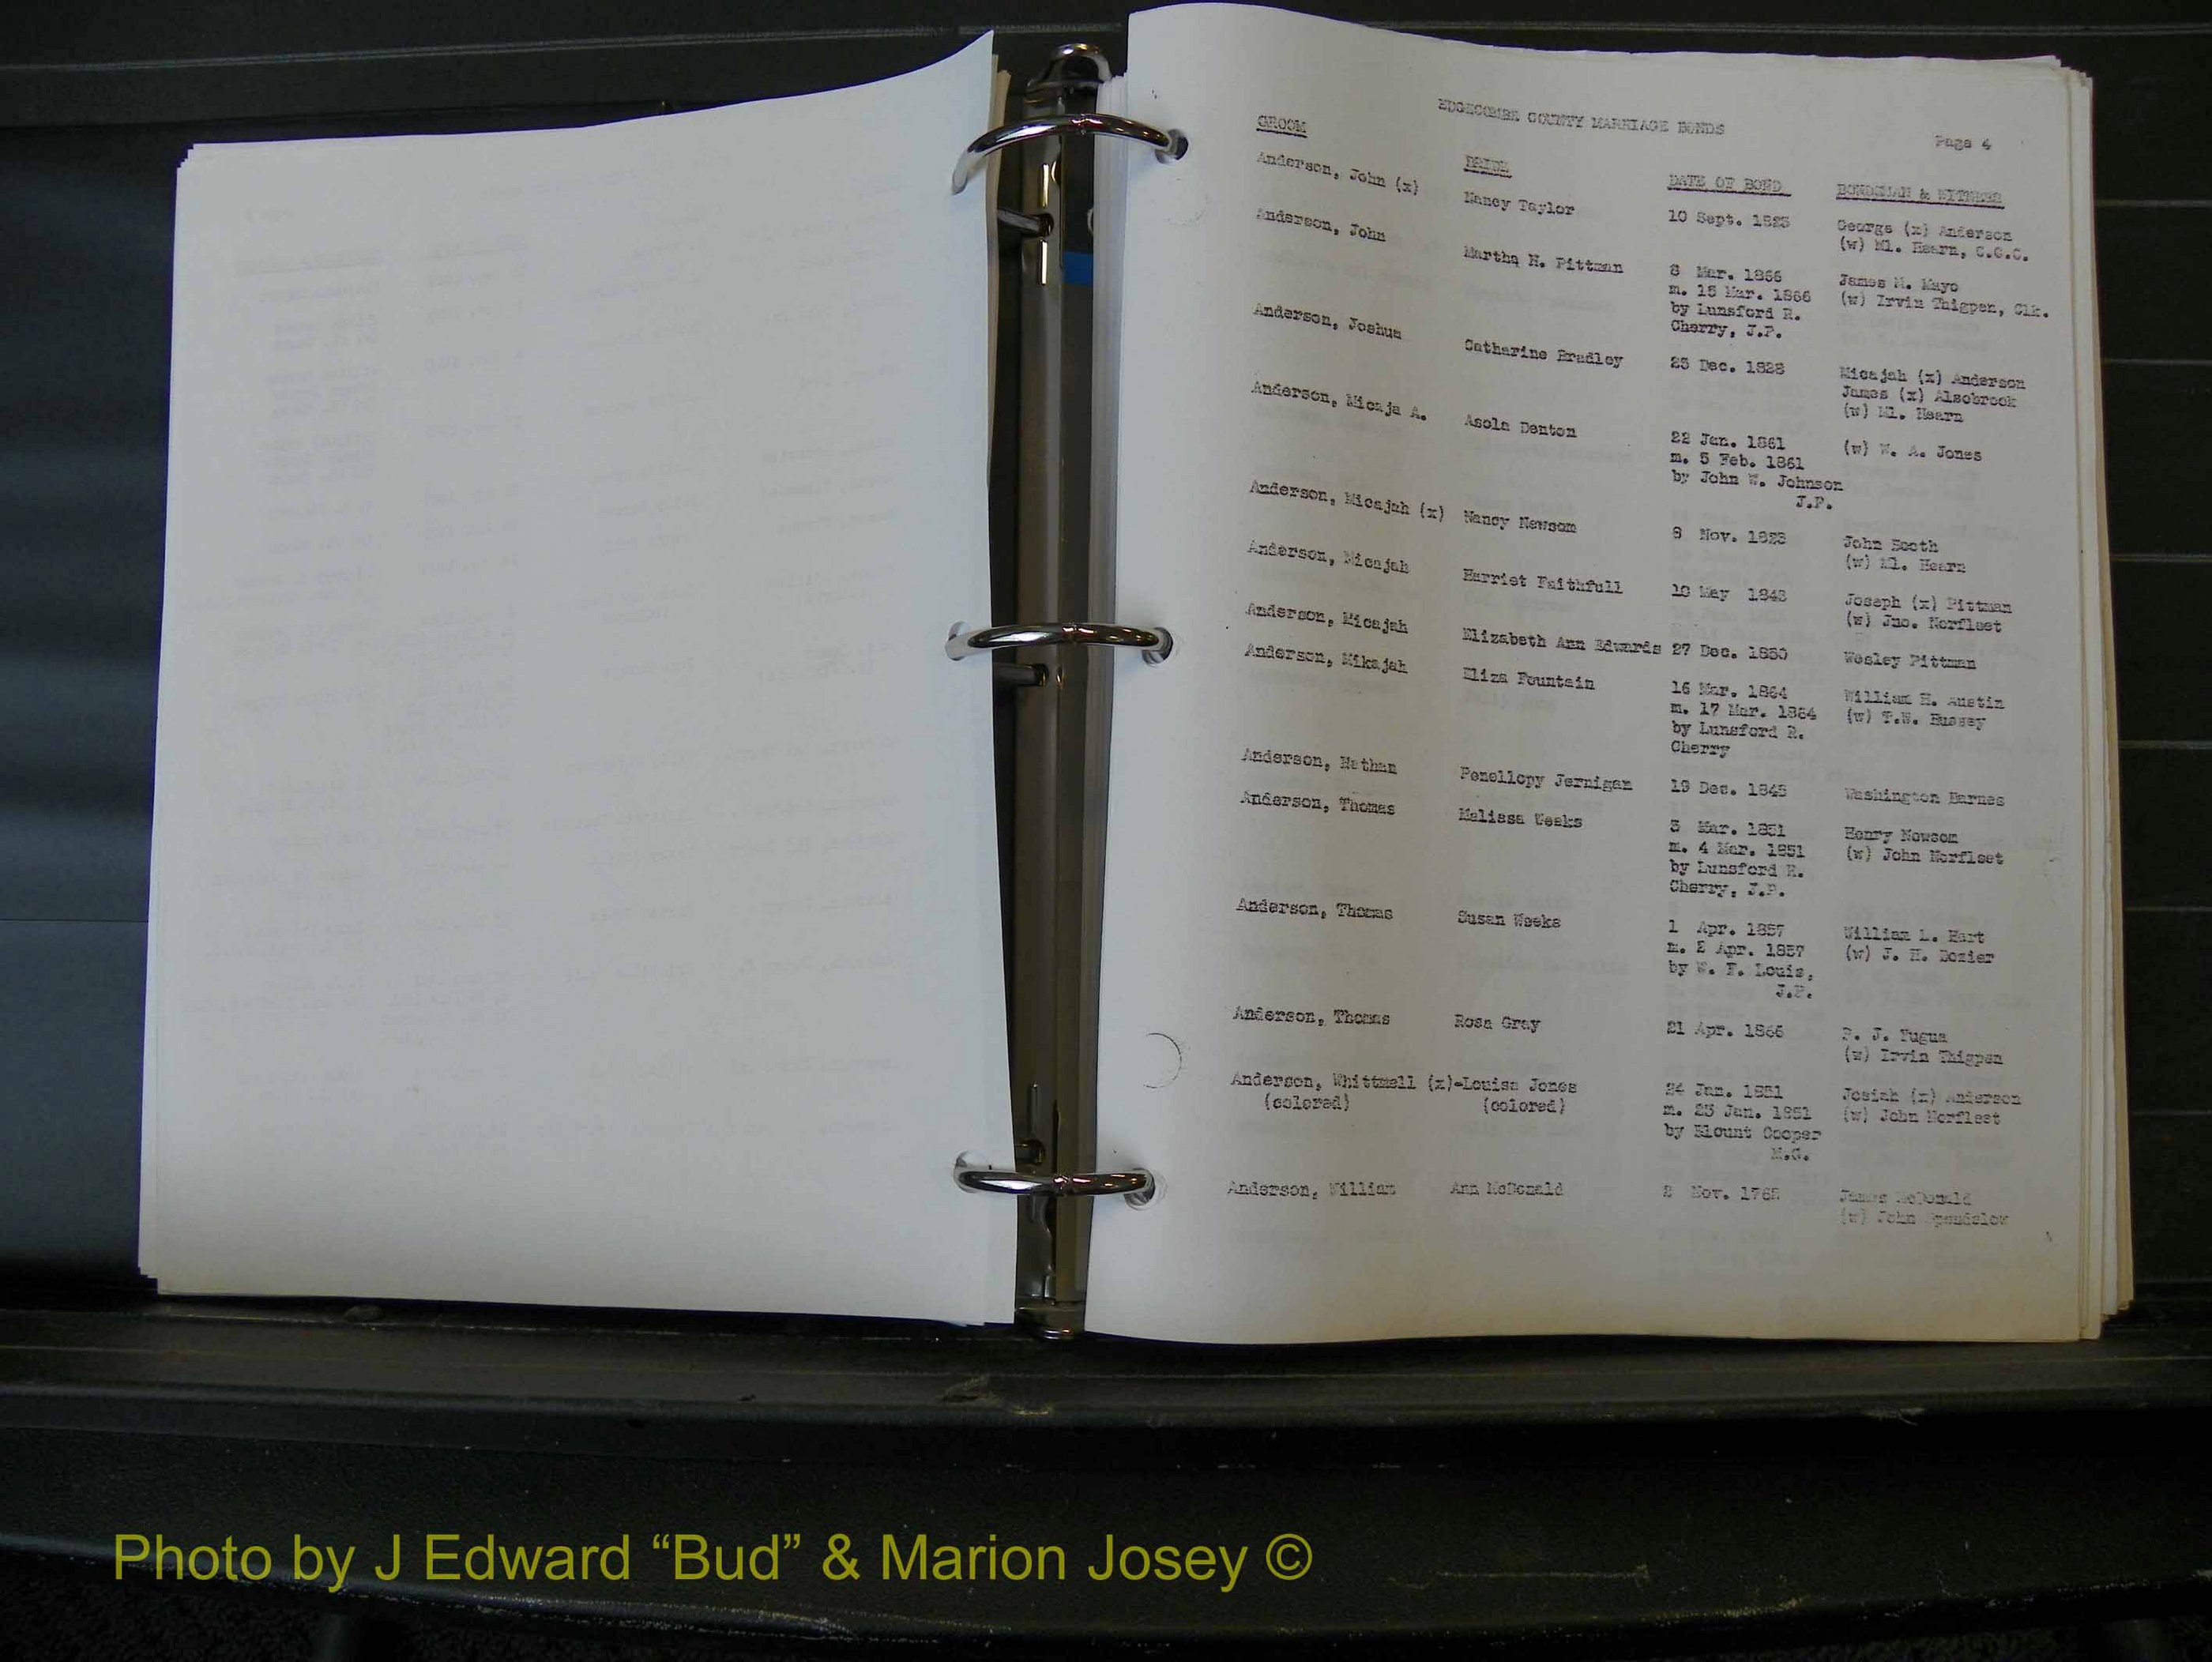 EDGECOMBE COUNTY MARRIAGE BONDS
Page 4
GROOM BRIDE DATE OF BOND BONDSMAN & WITNESS
Anderson, John (x) Nancy Taylor 10 Sept. George (x) Anderson
(w) Ml. Hearn, C.C.C.
Anderson, John Martha H. Pittman 8 Mar. 1866 James M. Mayo
m. 15 Mar. 1866 (w) Irvin Thigpen, Clk.
by Lunsford R.
Cherry, J.P.
Anderson, Joshua Catharine Bradley Dec. Micajah (x) Anderson
James (x) Alsobrook
(w) Ml. Hearn
Anderson, Micaja A. Asola Denton 22 Jan. 1861 (w) W. A. Jones
m. 5 Feb. 1861
by John W. Johnson
J.P.
Anderson, Micajah (x) Nancy Newsom Nov. John
(w) Ml. Hearn
Anderson, Micajah Harriet Faithfull May Joseph (x) Pittman
(w) Jno. Norfleet
Anderson, Micajah Elizabeth Ann Edwards 27 Dec. 1850 Wesley Pittman
Anderson, Mikajah Eliza Fountain 16 Mar. 1864 William H. Austin
m. 17 Mar. 1864 (w) T.W. Hussey
by Lunsford R.
Cherry
Anderson, Nathan Penellopy Jernigan 19 Dec. 1845 Washington Barnes
Anderson, Thomas Malissa Weeks 3 Mar. 1851 Henry Newsom
m. 4 Mar. 1851 (w) John Norfleet
by Lunsford R.
Cherry, J.P.
Anderson, Thomas Susan Weeks 1 Apr. 1857 William L. Hart
m. 2 Apr. 1857 (w) J. H. Dozier
by W. F. Louis,
J.P.
Anderson, Thomas Rosa Gray 21 Apr. 1866 J. Fugua
(w) Irvin Thigpen
Anderson, Whittmell (x)-Louisa Jones 24 Jan. 1851 Josiah (x) Anderson
(colored) (colored) m. 25 Jan. 1851 (w) John Norfleet
by Blount Cooper
M.G.
Anderson, William Ann McDonald 2 Nov. James McDonald
(w) John Spendelow
Photo by J Edward “Bud” & Marion Josey ©